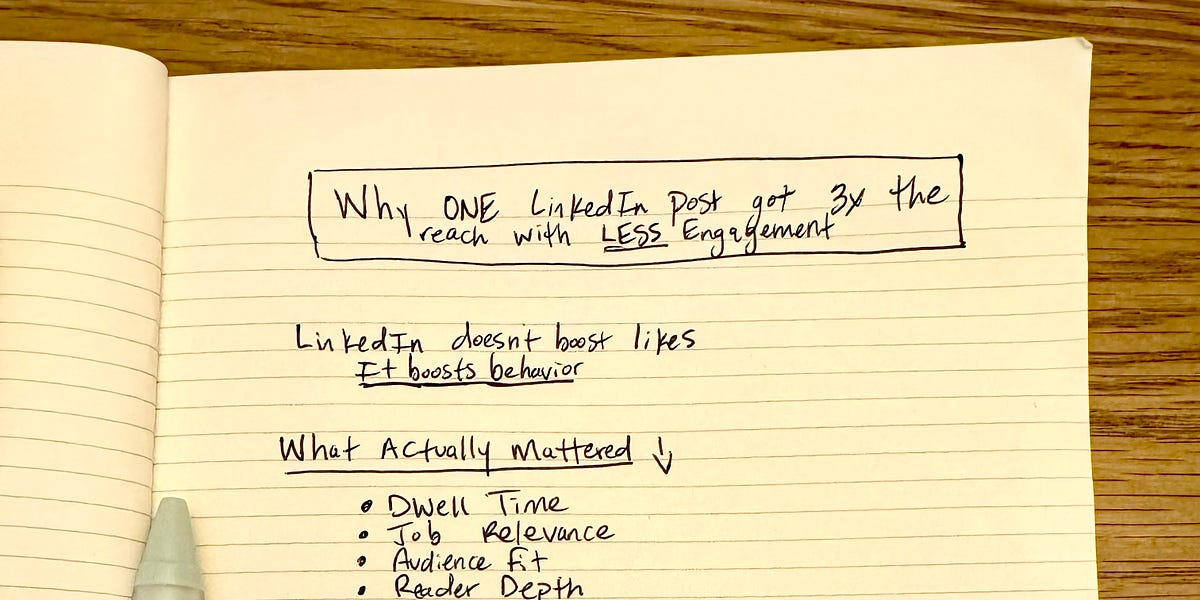 Why ONE LinkedIn Post got 3x the
reach with LESS Engagement
LinkedIn doesn't boost likes
It boosts behavior
What Actually Mattered ↓
• Dwell Time
• Job Relevance
• Audience fit
• Reader Depth